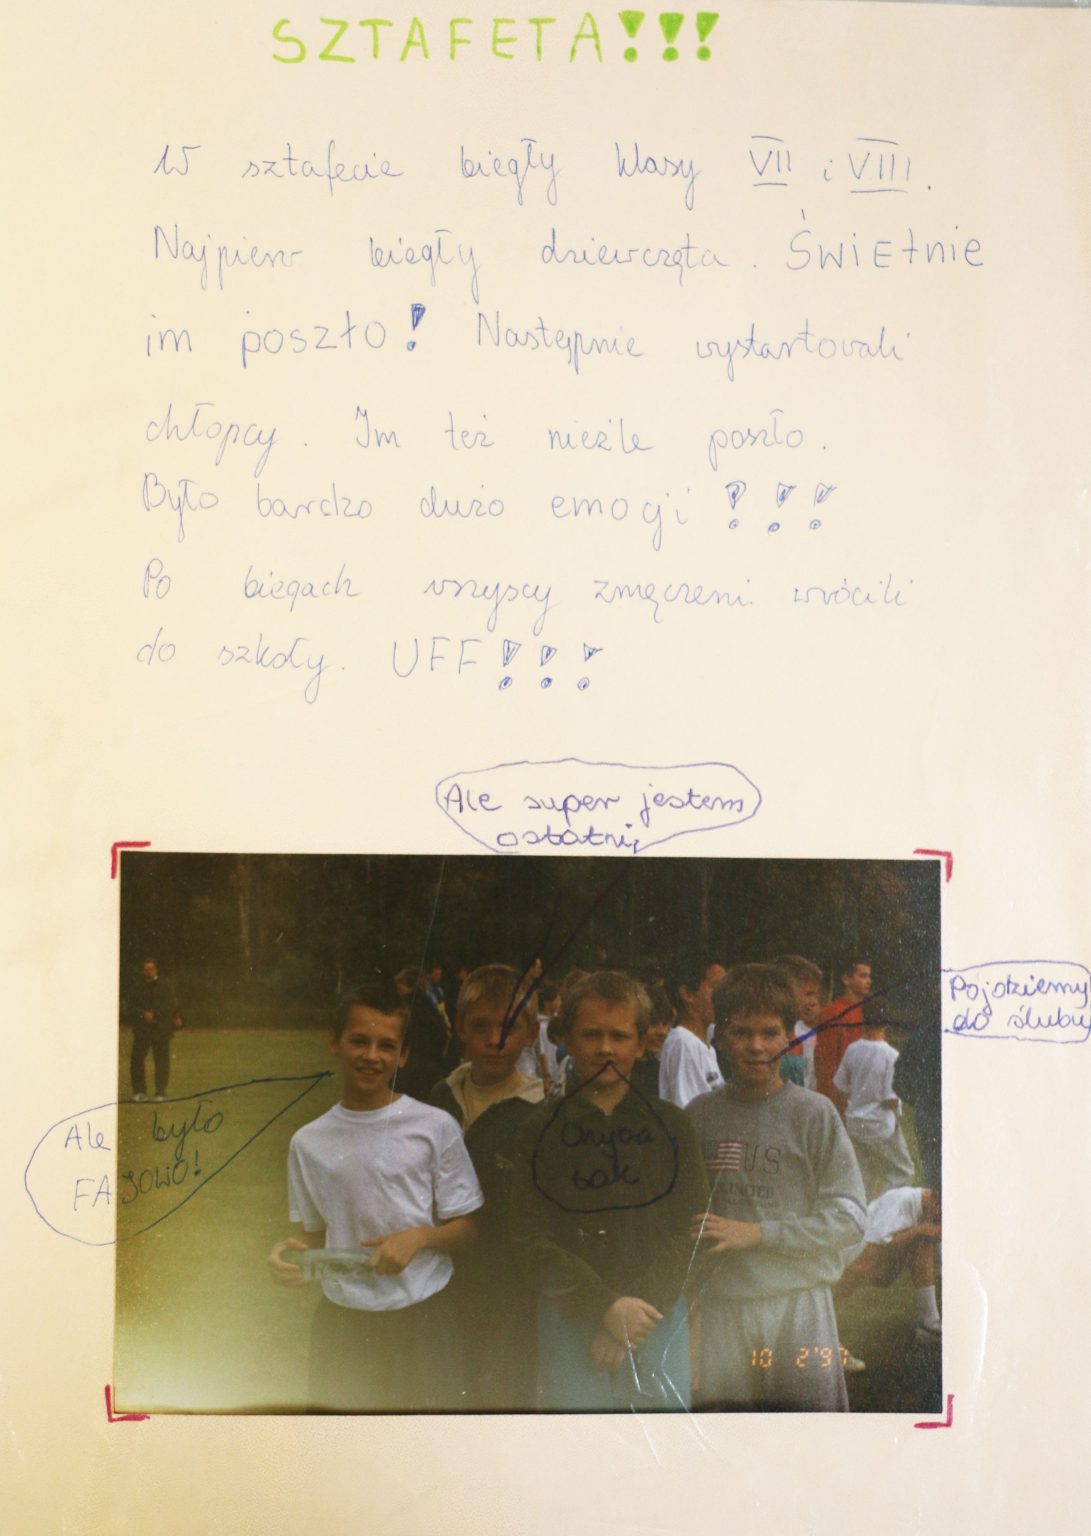 SZTAFETA!!!
W sztafecie biegły klasy VII i VIII.
Najpierw biegły dziewczęta. ŚWIEtnie
im poszło! Następnie wystartowali
chłopcy. Im też nieźle poszło.
Było bardzo dużo emocji!!!
Po biegach wszyscy zmęczeni wrócili
do szkoły. UFF!!!
Ale super jestem
ostatni,
Pojdziemy
do ślubu
Ale było
FAJOWO!
tak
U.S
UNITED
10 2'97